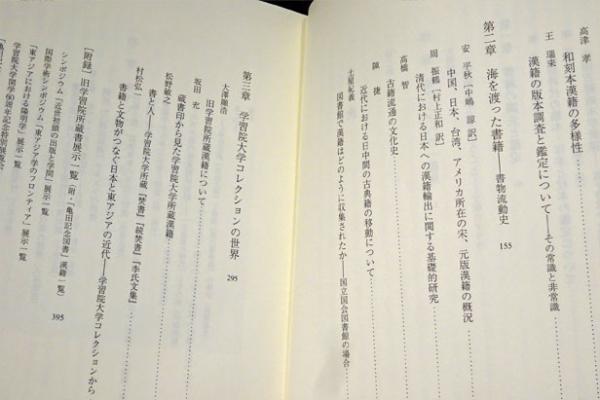 高津 孝
和刻本漢籍の多様性
王 瑞来
漢籍の版本調査と鑑定について――その常識と非常識
第二章 海を渡った書籍――書物流動史
155
安 平秋[中嶋 諒 訳]
中国、日本、台湾、アメリカ所在の宋、元版漢籍の概況
周 振鶴[村上正和 訳]
清代における日本への漢籍輸出に関する基礎的研究
高橋 智
古籍流通の文化史
陳 捷
近代における日中間の古典籍の移動について
土屋紀義
図書館で漢籍はどのように収集されたか――国立国会図書館の場合
第三章 学習院大学コレクションの世界
295
大澤顯浩
旧学習院所蔵漢籍について
坂田 充
蔵書印から見た学習院大学所蔵漢籍
松野敏之
書と人――学習院大学所蔵『焚書』『続焚書』『李氏文集』
村松弘一
書籍と文物がつなぐ日本と東アジアの近代――学習院大学コレクションから
[附録]旧学習院所蔵書展示一覧
395
シンポジウム「近世初頭の出版と学問」展示一覧(附・「亀田記念図書」漢籍一覧)
国際学術シンポジウム「東アジア学のフロンティア」展示一覧
「東アジアにおける陽明学」展示一覧
学習院大学開学60周年記念特別展覧会